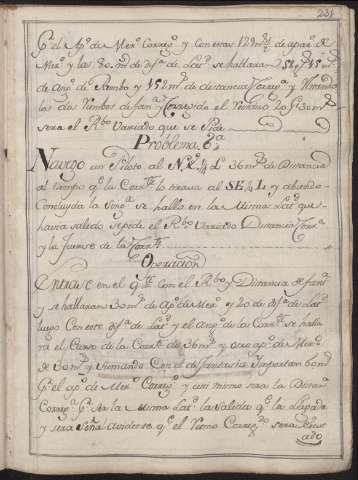 231
q.e el Ap.o de Mer.o Correg.o y con otras 129 m.s de apar.o de
Mer.o y las 80 m.s de dif.a de Lat.d se hallaran
de ang.o de Rumbo y 152 m.s de distancia Correg.a y
los dos Rumbos de fan.a y Corregida el
sera el R.bo Variado que se Pide
Problema 6.a
Navego un Piloto al N.E. 1/4 L.e 36 m.s de Distancia
al tiempo q.e la Corr.te lo tirava al SE 1/4 L y
Concluyda la Sing.a se halla en la Misma Lat.d que
havia salido se pide el R.bo Variado Distancia Corr.a
y la fuerse de la Corr.te
Operacion
Entrase en el Q.te con el R.bo y Distancia de fan.a
y se hallaran 30 m.s de Ap.o de Mer.o y 20 de dif.a de Lat.d
luego Con esta dif.a de Lat.d y el ang.o de las Corr.tes se halla
ra el Curso de la Corr.te de 36 m.s y otro ap.o de Mer.o
de 30 m.s y Sumando Con el de fantastia Importan 60 m.s
q.e el ap.o de Mer.o Correg.o y assi mismo sera la Distan.a
Correg.a q.e la misma Lat.d la salida q.e la llegada
y sera Señal evidente q.e el Rumo Correg.do sera
ado